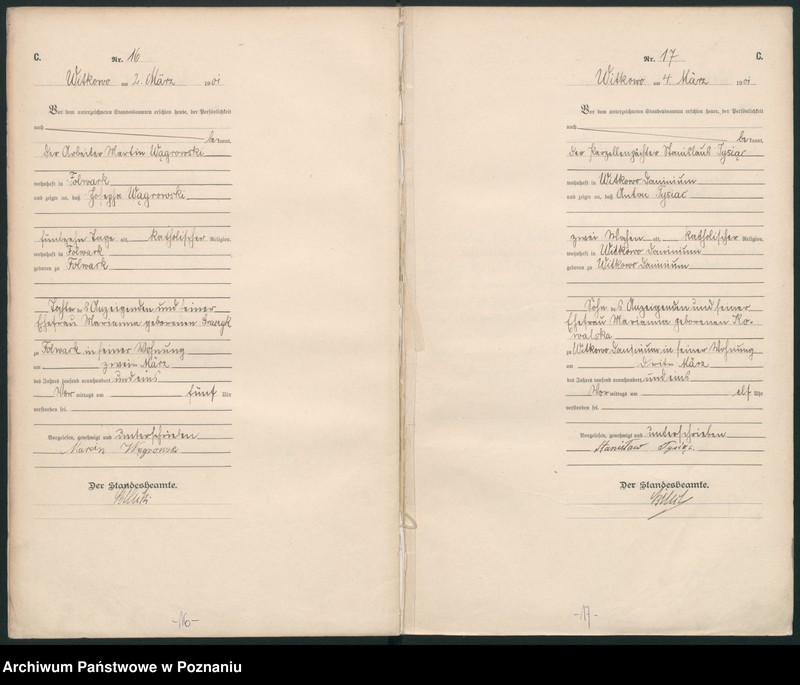 C.
Nr. 16
Witkowo am 2. März 1901
Vor dem unterzeichneten Standesbeamten erschien heute, der Persönlichkeit
nach
be kannt,
der Arbeiter Martin Wągrowski
wohnhaft in Folwark
und zeigte an, daß Josepha Wągrowski
fünfzehn Tage alt, katholischer Religion,
wohnhaft in Folwark
geboren zu Folwark
Tochter des Anzeigenden und seiner
Ehefrau Marianna geborenen
zu Folwark in seiner Wohnung
am zweiten März
des Jahres tausend neunhundert und eins
Vor mittags um fünf Uhr
verstorben sei.
Vorgelesen, genehmigt und unterschrieben
Marcin
Der Standesbeamte.
-16-
Nr. 17
C.
Witkowo am 4. März 1901
Vor dem unterzeichneten Standesbeamten erschien heute, der Persönlichkeit
nach
be kannt,
der Parzellenpächter Stanislaus Tysiąc
wohnhaft in Witkowo Dominium
und zeigte an, daß Anton Tysiąc
zwei Wochen alt, katholischer Religion,
wohnhaft in Witkowo Dominium
geboren zu Witkowo Dominium
Sohn des Anzeigenden und seiner
Ehefrau Marianna geborenen Ko-
walska
zu Witkowo Dominium in seiner Wohnung
am dritten März
des Jahres tausend neunhundert und eins
Vor mittags um elf Uhr
verstorben sei.
Vorgelesen, genehmigt und unterschrieben
Stanisław Tysiąc
Der Standesbeamte.
-17-
Archiwum Państwowe w Poznaniu